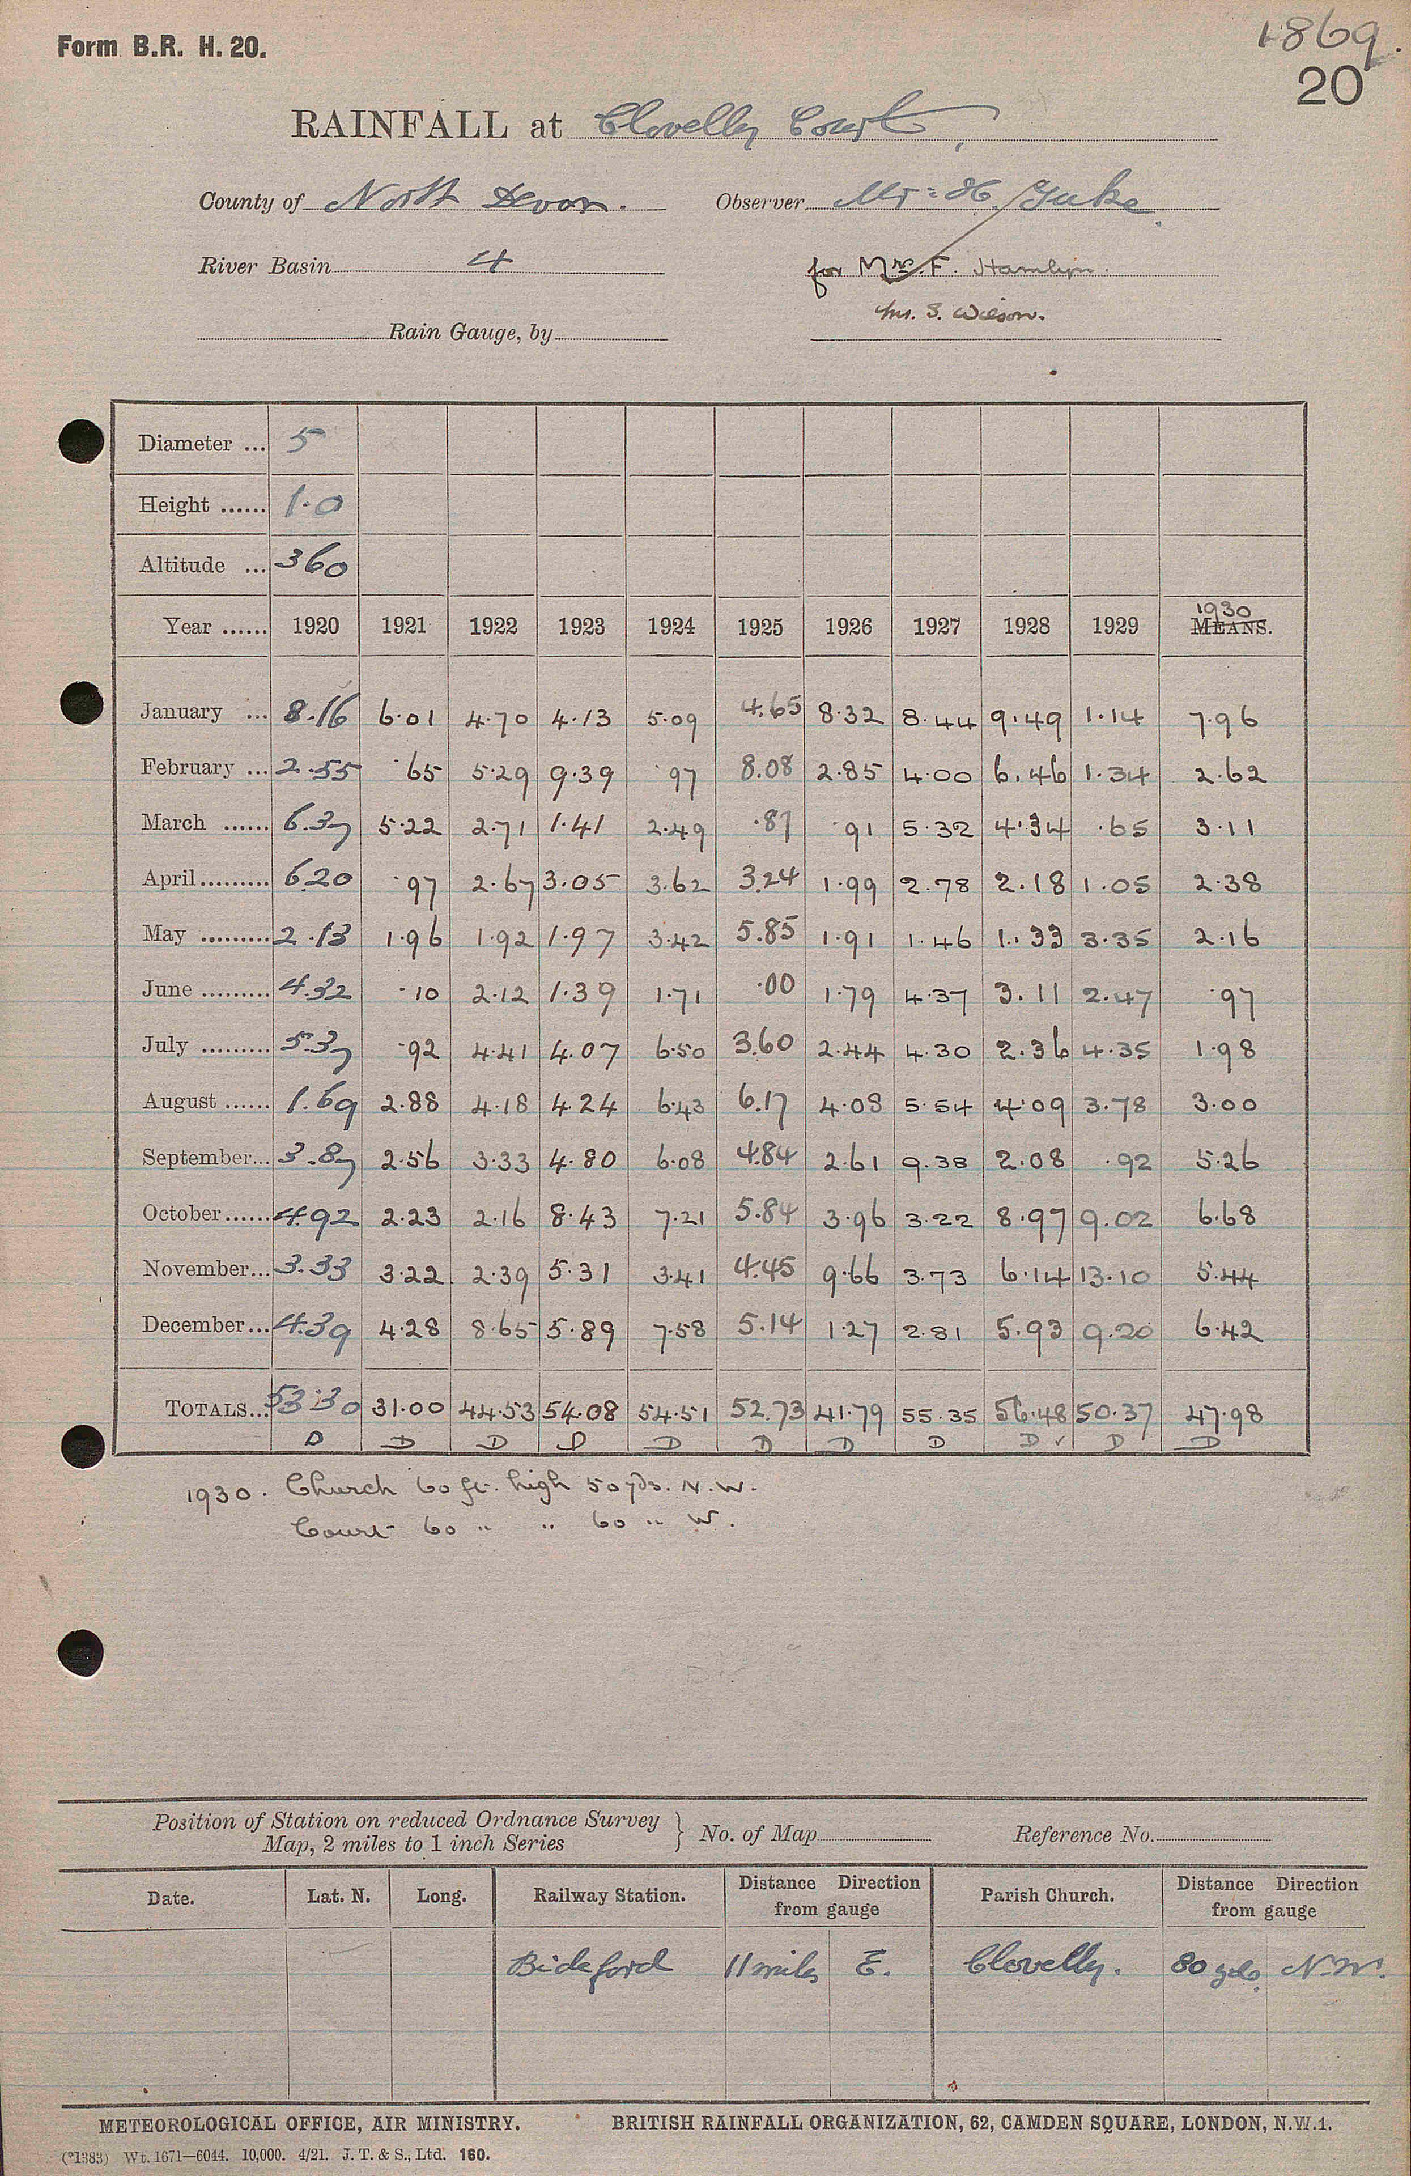 Form B.R. H. 20.
1869.
20
RAINFALL at Clovelly Court
County of North Devon. Observer Mr. H. Yuke
River Basin 4 for Mrs. F. Hamlyn.
Mrs. S. Wilson.
Rain Gauge, by
Diameter ... 5
Height ...... 1.0
Altitude ... 360
Year ...... 1920 1921 1922 1923 1924 1925 1926 1927 1928 1929 1930 MEANS.
January ... 8.16 6.01 4.70 4.13 5.09 4.65 8.32 8.44 9.49 1.14 7.96
February ... 2.55 .65 5.29 9.39 .97 8.08 2.85 4.00 6.46 1.34 2.62
March ...... 6.37 5.22 2.71 1.41 2.49 .87 .91 5.32 4.34 .65 3.11
April ......... 6.20 .97 2.67 3.05 3.62 3.24 1.99 2.78 2.18 1.05 2.38
May ......... 2.13 1.96 1.92 1.97 3.42 5.85 1.91 1.46 1.33 3.35 2.16
June ......... 4.32 .10 2.12 1.39 1.71 .00 1.79 4.37 3.11 2.47 .97
July ......... 5.37 .92 4.41 4.07 6.50 3.60 2.44 4.30 2.36 4.35 1.98
August ...... 1.69 2.88 4.18 4.24 6.43 6.17 4.08 5.54 4.09 3.78 3.00
September... 3.87 2.56 3.33 4.80 6.08 4.84 2.61 9.38 2.08 .92 5.26
October ...... 4.92 2.23 2.16 8.43 7.21 5.84 3.96 3.22 8.97 9.02 6.68
November... 3.33 3.22 2.39 5.31 3.41 4.45 9.66 3.73 6.14 13.10 5.44
December ... 4.39 4.28 8.65 5.89 7.58 5.14 1.27 2.81 5.93 9.20 6.42
TOTALS... 53.30 31.00 44.53 54.08 54.51 52.73 41.79 55.35 56.48 50.37 47.98
D D D D D D D D D ✓ D D
1930. Church 60 ft. high 50 yds. N.W.
Court 60 " " 60 " W.
Position of Station on reduced Ordnance Survey
Map, 2 miles to 1 inch Series } No. of Map Reference No.
Date. Lat. N. Long. Railway Station. Distance Direction from gauge Parish Church. Distance Direction from gauge
Bideford 11 miles E. Clovelly. 80 yds. N.W.
METEOROLOGICAL OFFICE, AIR MINISTRY. BRITISH RAINFALL ORGANIZATION, 62, CAMDEN SQUARE, LONDON, N.W.1.
(*1383) Wt. 1671—6044. 10,000. 4/21. J. T. & S., Ltd. 160.